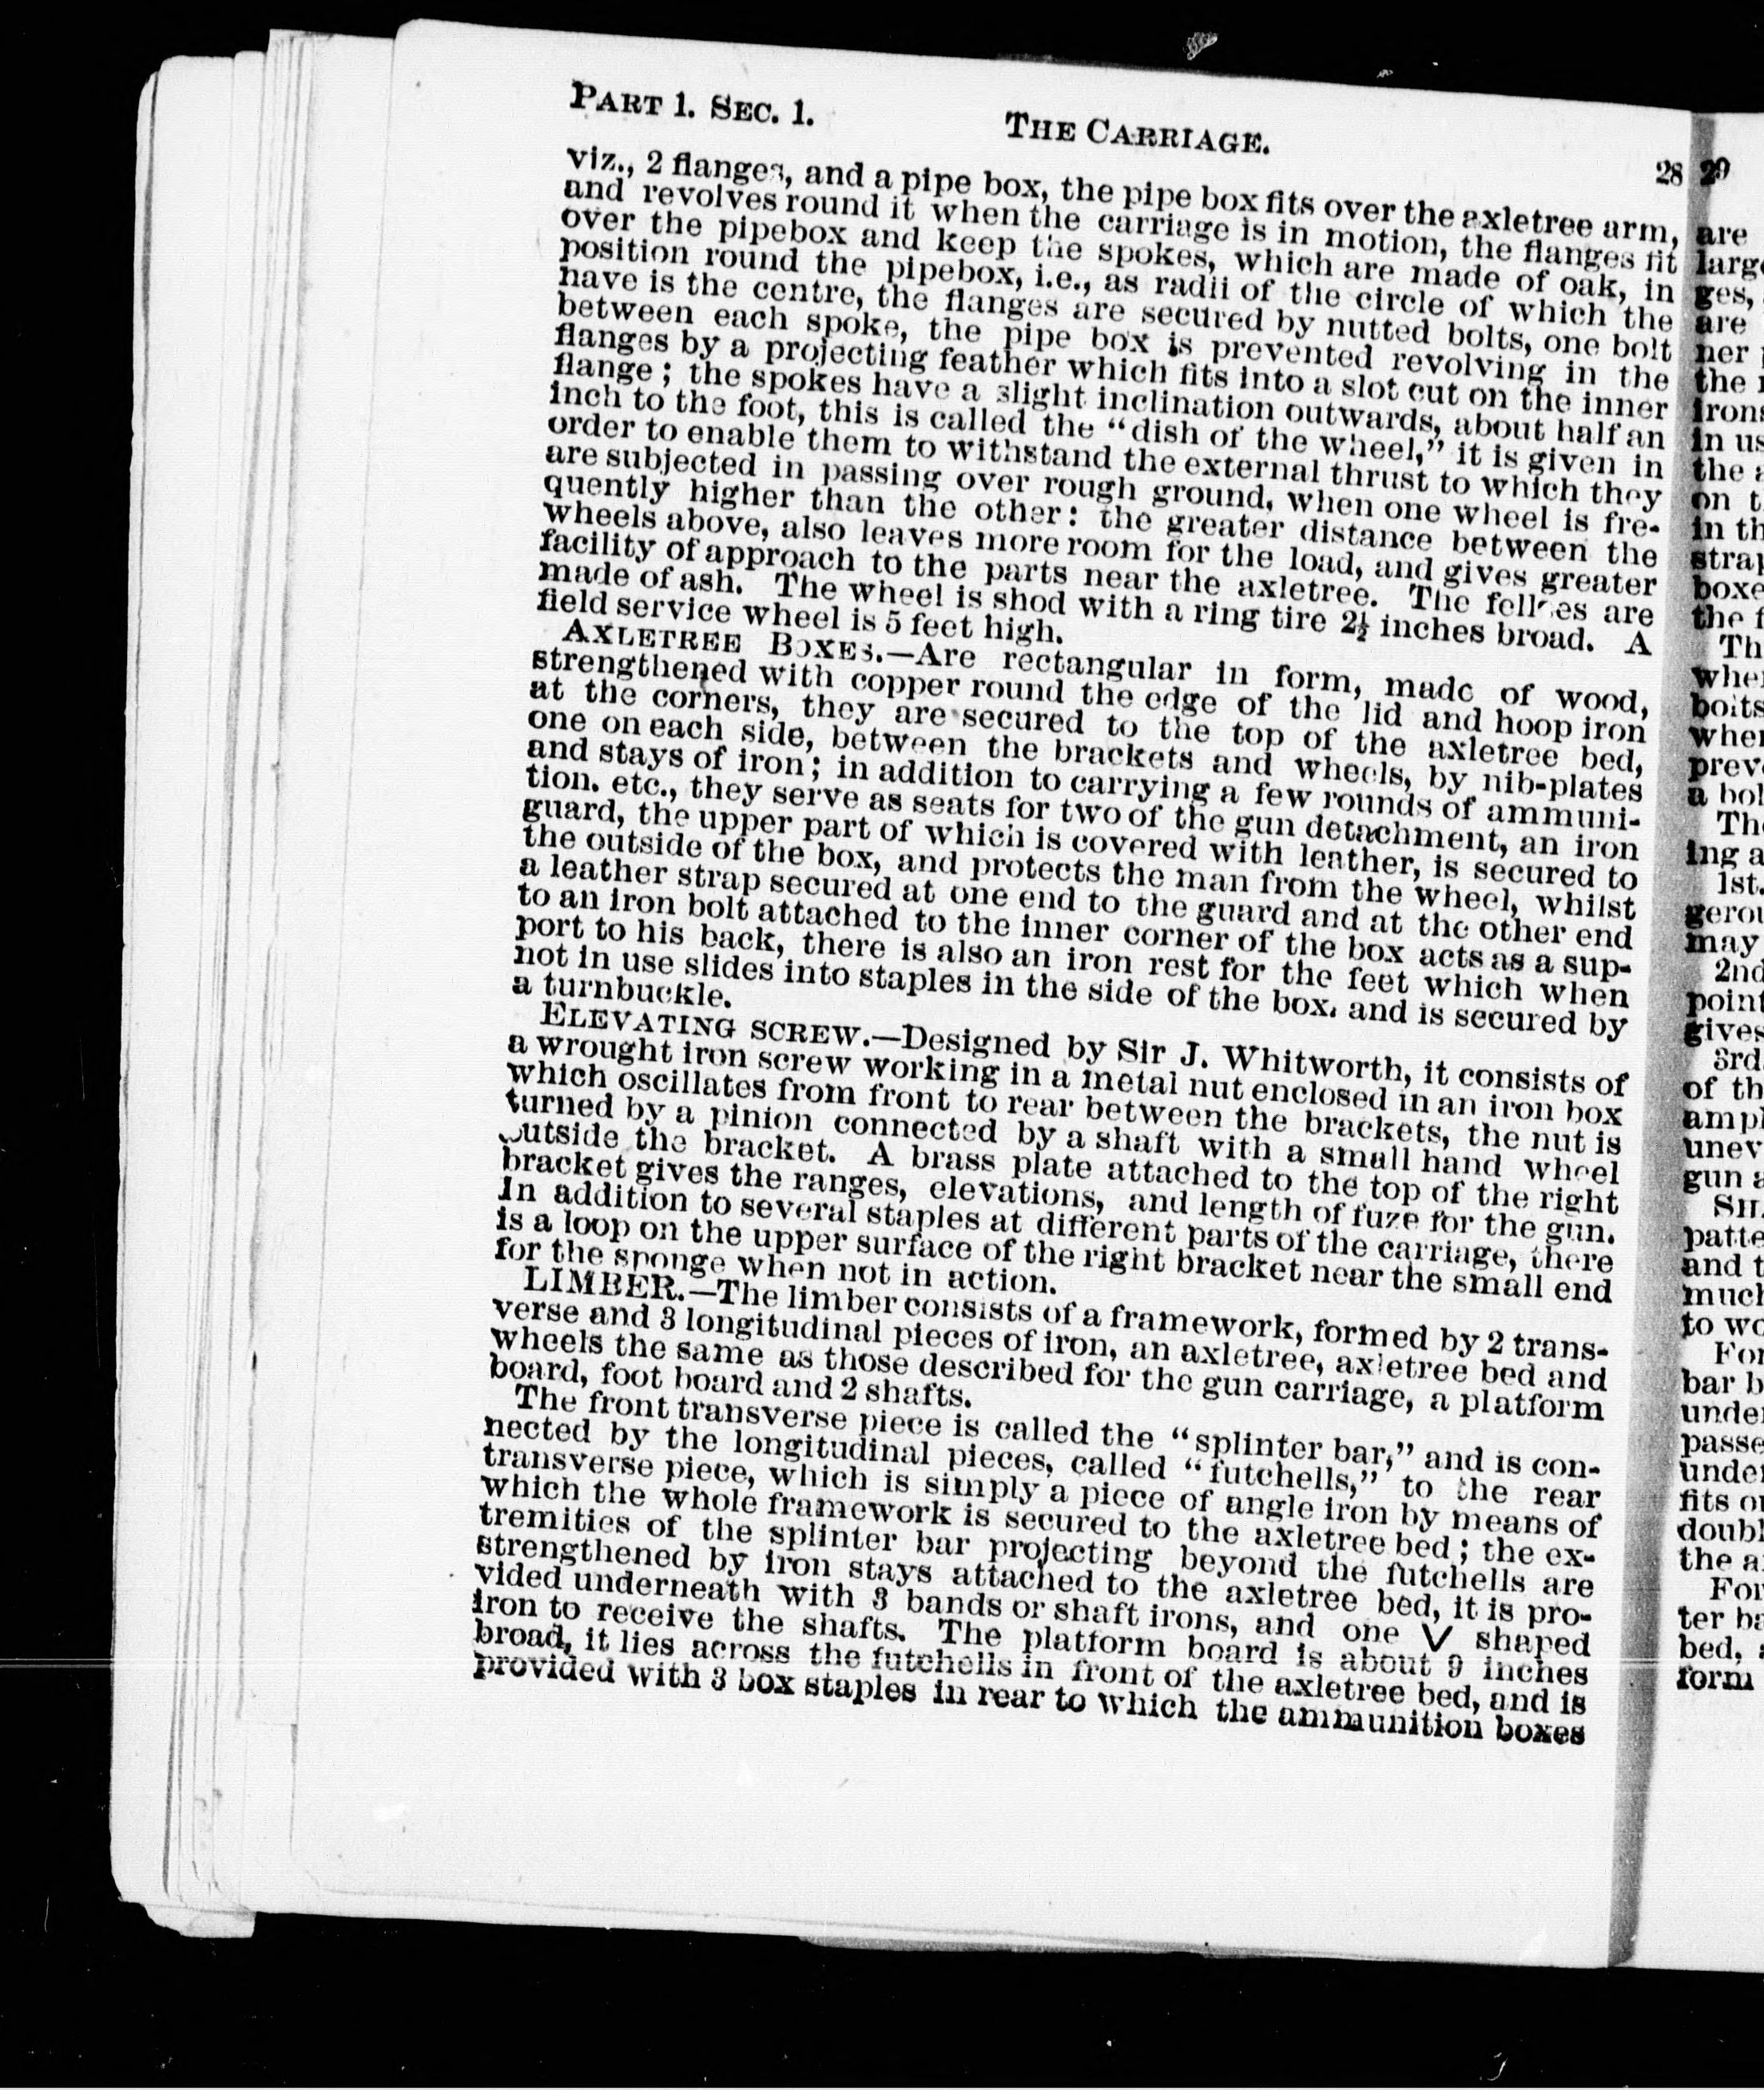 PART 1. SEC. 1. THE CARRIAGE. 28
viz., 2 flanges, and a pipe box, the pipe box fits over the axletree arm,
and revolves round it when the carriage is in motion, the flanges fit
over the pipebox and keep the spokes, which are made of oak, in
position round the pipebox, i.e., as radii of the circle of which the
nave is the centre, the flanges are secured by nutted bolts, one bolt
between each spoke, the pipe box is prevented revolving in the
flanges by a projecting feather which fits into a slot cut on the inner
flange; the spokes have a slight inclination outwards, about half an
inch to the foot, this is called the "dish of the wheel," it is given in
order to enable them to withstand the external thrust to which they
are subjected in passing over rough ground, when one wheel is fre-
quently higher than the other: the greater distance between the
wheels above, also leaves more room for the load, and gives greater
facility of approach to the parts near the axletree. The felloes are
made of ash. The wheel is shod with a ring tire 2½ inches broad. A
field service wheel is 5 feet high.
AXLETREE BOXES.—Are rectangular in form, made of wood,
strengthened with copper round the edge of the lid and hoop iron
at the corners, they are secured to the top of the axletree bed,
one on each side, between the brackets and wheels, by nib-plates
and stays of iron; in addition to carrying a few rounds of ammuni-
tion. etc., they serve as seats for two of the gun detachment, an iron
guard, the upper part of which is covered with leather, is secured to
the outside of the box, and protects the man from the wheel, whilst
a leather strap secured at one end to the guard and at the other end
to an iron bolt attached to the inner corner of the box acts as a sup-
port to his back, there is also an iron rest for the feet which when
not in use slides into staples in the side of the box. and is secured by
a turnbuckle.
ELEVATING SCREW.—Designed by Sir J. Whitworth, it consists of
a wrought iron screw working in a metal nut enclosed in an iron box
which oscillates from front to rear between the brackets, the nut is
turned by a pinion connected by a shaft with a small hand wheel
outside the bracket. A brass plate attached to the top of the right
bracket gives the ranges, elevations, and length of fuze for the gun.
In addition to several staples at different parts of the carriage, there
is a loop on the upper surface of the right bracket near the small end
for the sponge when not in action.
LIMBER.—The limber consists of a framework, formed by 2 trans-
verse and 3 longitudinal pieces of iron, an axletree, axletree bed and
wheels the same as those described for the gun carriage, a platform
board, foot board and 2 shafts.
The front transverse piece is called the "splinter bar," and is con-
nected by the longitudinal pieces, called "futchells," to the rear
transverse piece, which is simply a piece of angle iron by means of
which the whole framework is secured to the axletree bed; the ex-
tremities of the splinter bar projecting beyond the futchells are
strengthened by iron stays attached to the axletree bed, it is pro-
vided underneath with 3 bands or shaft irons, and one V shaped
iron to receive the shafts. The platform board is about 9 inches
broad, it lies across the futchells in front of the axletree bed, and is
provided with 3 box staples in rear to which the ammunition boxes
29
are
large
ges,
are
ner
the
irons
in us
the a
on t
in th
strap
boxe
the f
Th
when
bolts
when
prev
a bol
The
ing a
1st.
gerou
may
2nd
point
gives
3rd
of th
ampl
unev
gun a
SHA
patte
and t
much
to wo
For
bar b
under
passe
under
fits on
doubl
the a
For
ter ba
bed,
form